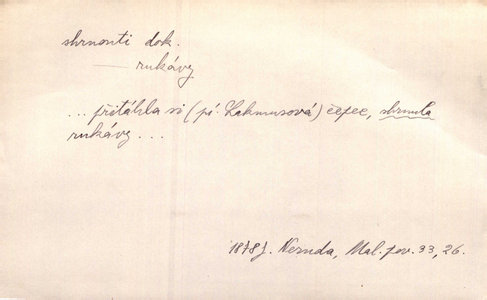 shrnouti dok.
— rukávy
... přitáhla si (pí. Lakmusová) čepec, shrnula
rukávy ...
1878 J. Neruda, Mal. pov. 33, 26.